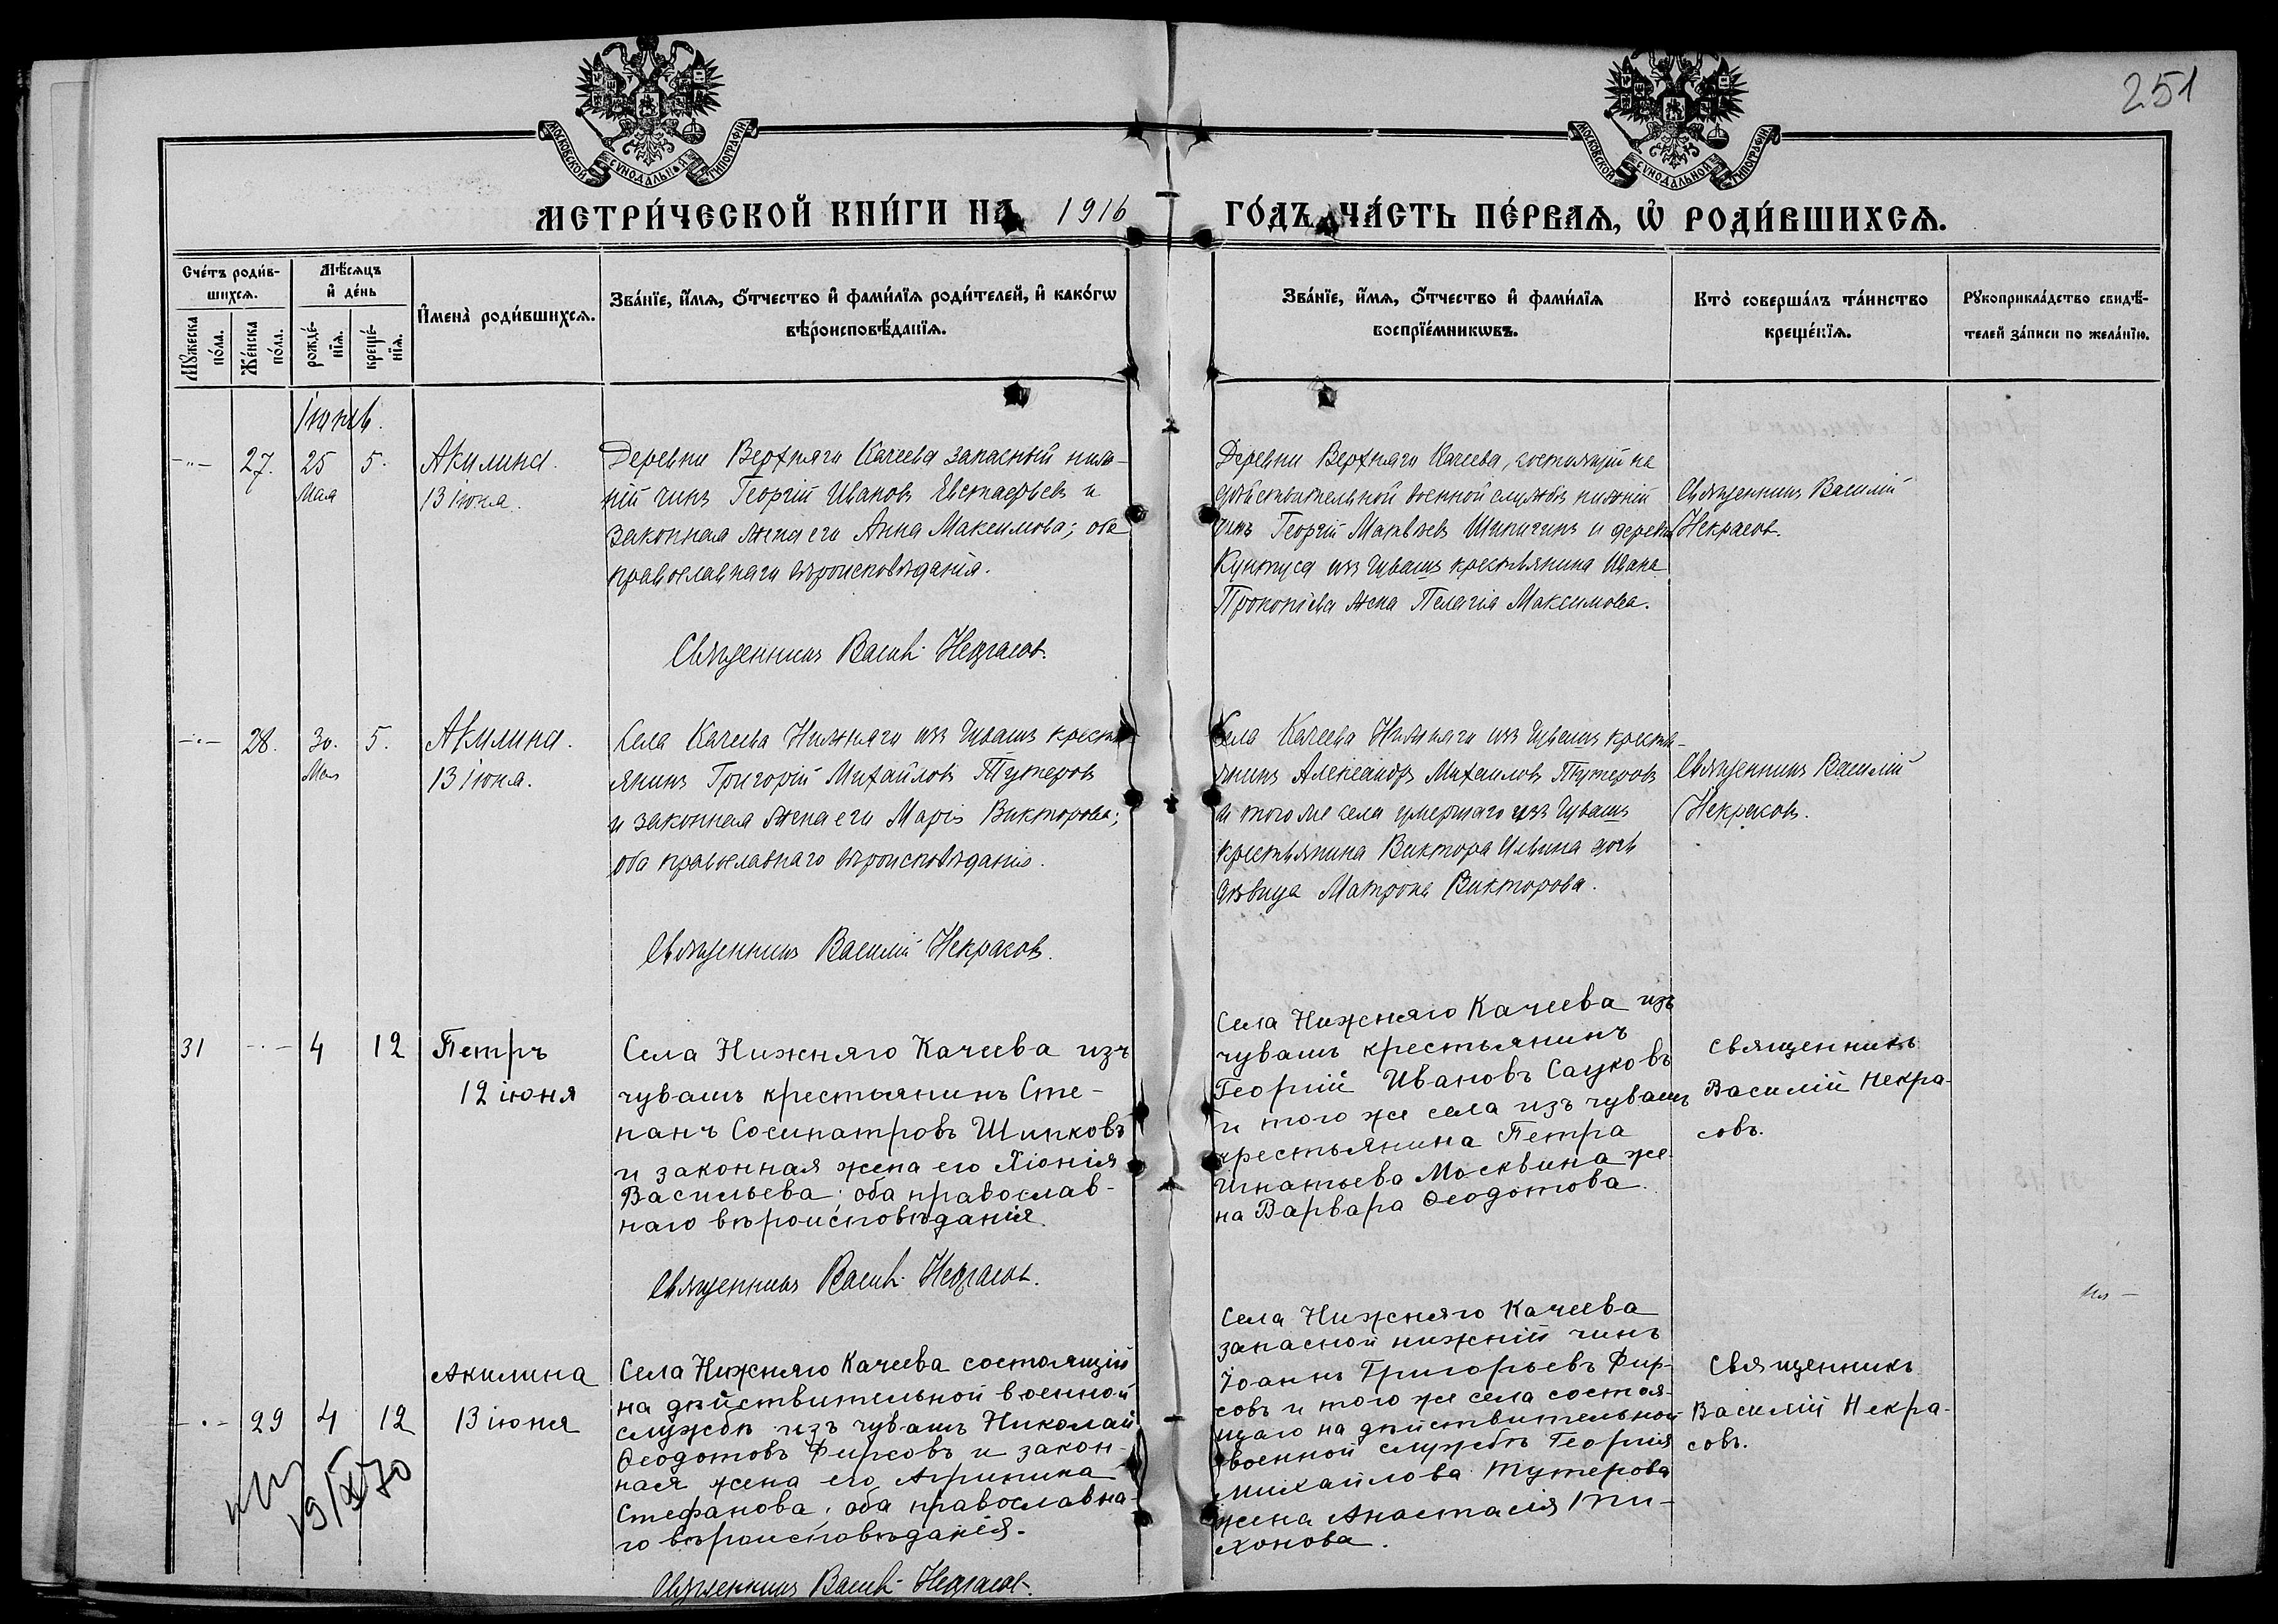 251
МОСКОВСКОЙ СѴНОДАЛЬНОЙ ТИПОГРАФІИ
МОСКОВСКОЙ СѴНОДАЛЬНОЙ ТИПОГРАФІИ
МЕТРИ́ЧЕСКОЙ КНИ́ГИ НА 1916 ГО́ДЪ, ЧА́СТЬ ПЕ́РВАѦ, Ѡ҆ РОДИ́ВШИХСѦ.
Сче́тъ роди́в-
шихсѧ.
Мꙋ́жеска
по́ла.
Же́нска
по́ла.
Мѣ́сѧцъ
и҆ де́нь
рожде́-
нїѧ.
креще́-
нїѧ.
И҆мена̀ роди́вшихсѧ.
Зва́нїе, и҆́мѧ, ѻ҆́тчество и҆ фами́лїѧ роди́телей, и҆ како́гѡ
вѣроисповѣ́данїѧ.
Зва́нїе, и҆́мѧ, ѻ҆́тчество и҆ фами́лїѧ
воспрїе́мникѡвъ.
Кто̀ соверша́лъ та́инство
креще́нїѧ.
Рꙋкоприкла́дство свидѣ́-
телей за́писи по жела́нїю.
Іюнь.
-"- 27. 25 5.
Мая
Акилина.
13 іюня.
Деревни Верхняго Качеева запасный ниж-
ній чинъ Георгій Ивановъ Евстафьевъ и
законная жена его Анна Максимова; оба
православнаго вѣроисповѣданія.
Священникъ Васил. Некрасов.
Деревни Верхняго Качеева, состоящій на
дѣйствительной военной службѣ нижній
чинъ Георгій Матвѣевъ Шипигинъ и деревни
Кунтуса изъ чувашъ крестьянина Ивана
Прокопіева жена Пелагія Максимова.
Священникъ Василій
Некрасов.
-"- 28. 30. 5.
Мая
Акилина.
13 іюня.
Села Качеева Нижняго изъ чувашъ кресть-
янинъ Григорій Михайловъ Тутеровъ
и законная жена его Марія Викторова;
оба православнаго вѣроисповѣданія.
Священникъ Василій Некрасовъ.
Села Качеева Нижняго изъ чувашъ кресть-
янинъ Александръ Михаиловъ Тутеровъ
и того же села умершаго изъ чувашъ
крестьянина Виктора Ильина дочь
дѣвица Матрона Викторова.
Священникъ Василій
Некрасовъ.
31 -"- 4 12
Петръ
12 іюня
Села Нижняго Качеева изъ
чувашъ крестьянинъ Сте-
панъ Сосипатровъ Шипковъ
и законная жена его Хіонія
Васильева; оба православ-
наго вѣроисповѣданія.
Священникъ Васил. Некрасов.
Села Нижняго Качеева изъ
чувашъ крестьянинъ
Георгій Ивановъ Сауковъ
и того же села изъ чувашъ
крестьянина Петра
Игнатьева Москвина же-
на Варвара Ѳеодотова.
Священникъ
Василій Некра-
совъ.
-"- 29 4 12
Акилина
13 іюня
Села Нижняго Качеева состоящій
на дѣйствительной военной
службѣ изъ чувашъ Николай
Ѳеодотовъ Фирсовъ и закон-
ная жена его Агрипина
Стефанова, оба православна-
го вѣроисповѣданія.
Священникъ Васил. Некрасов.
Села Нижняго Качеева
запасной нижній чинъ
Іоаннъ Григорьевъ Фир-
совъ и того же села состоя-
щаго на дѣйствительной
военной службѣ Георгія
Михайлова Тутерова
жена Анастасія Ти-
хонова.
Священникъ
Василій Некра-
совъ.
19/IX 70